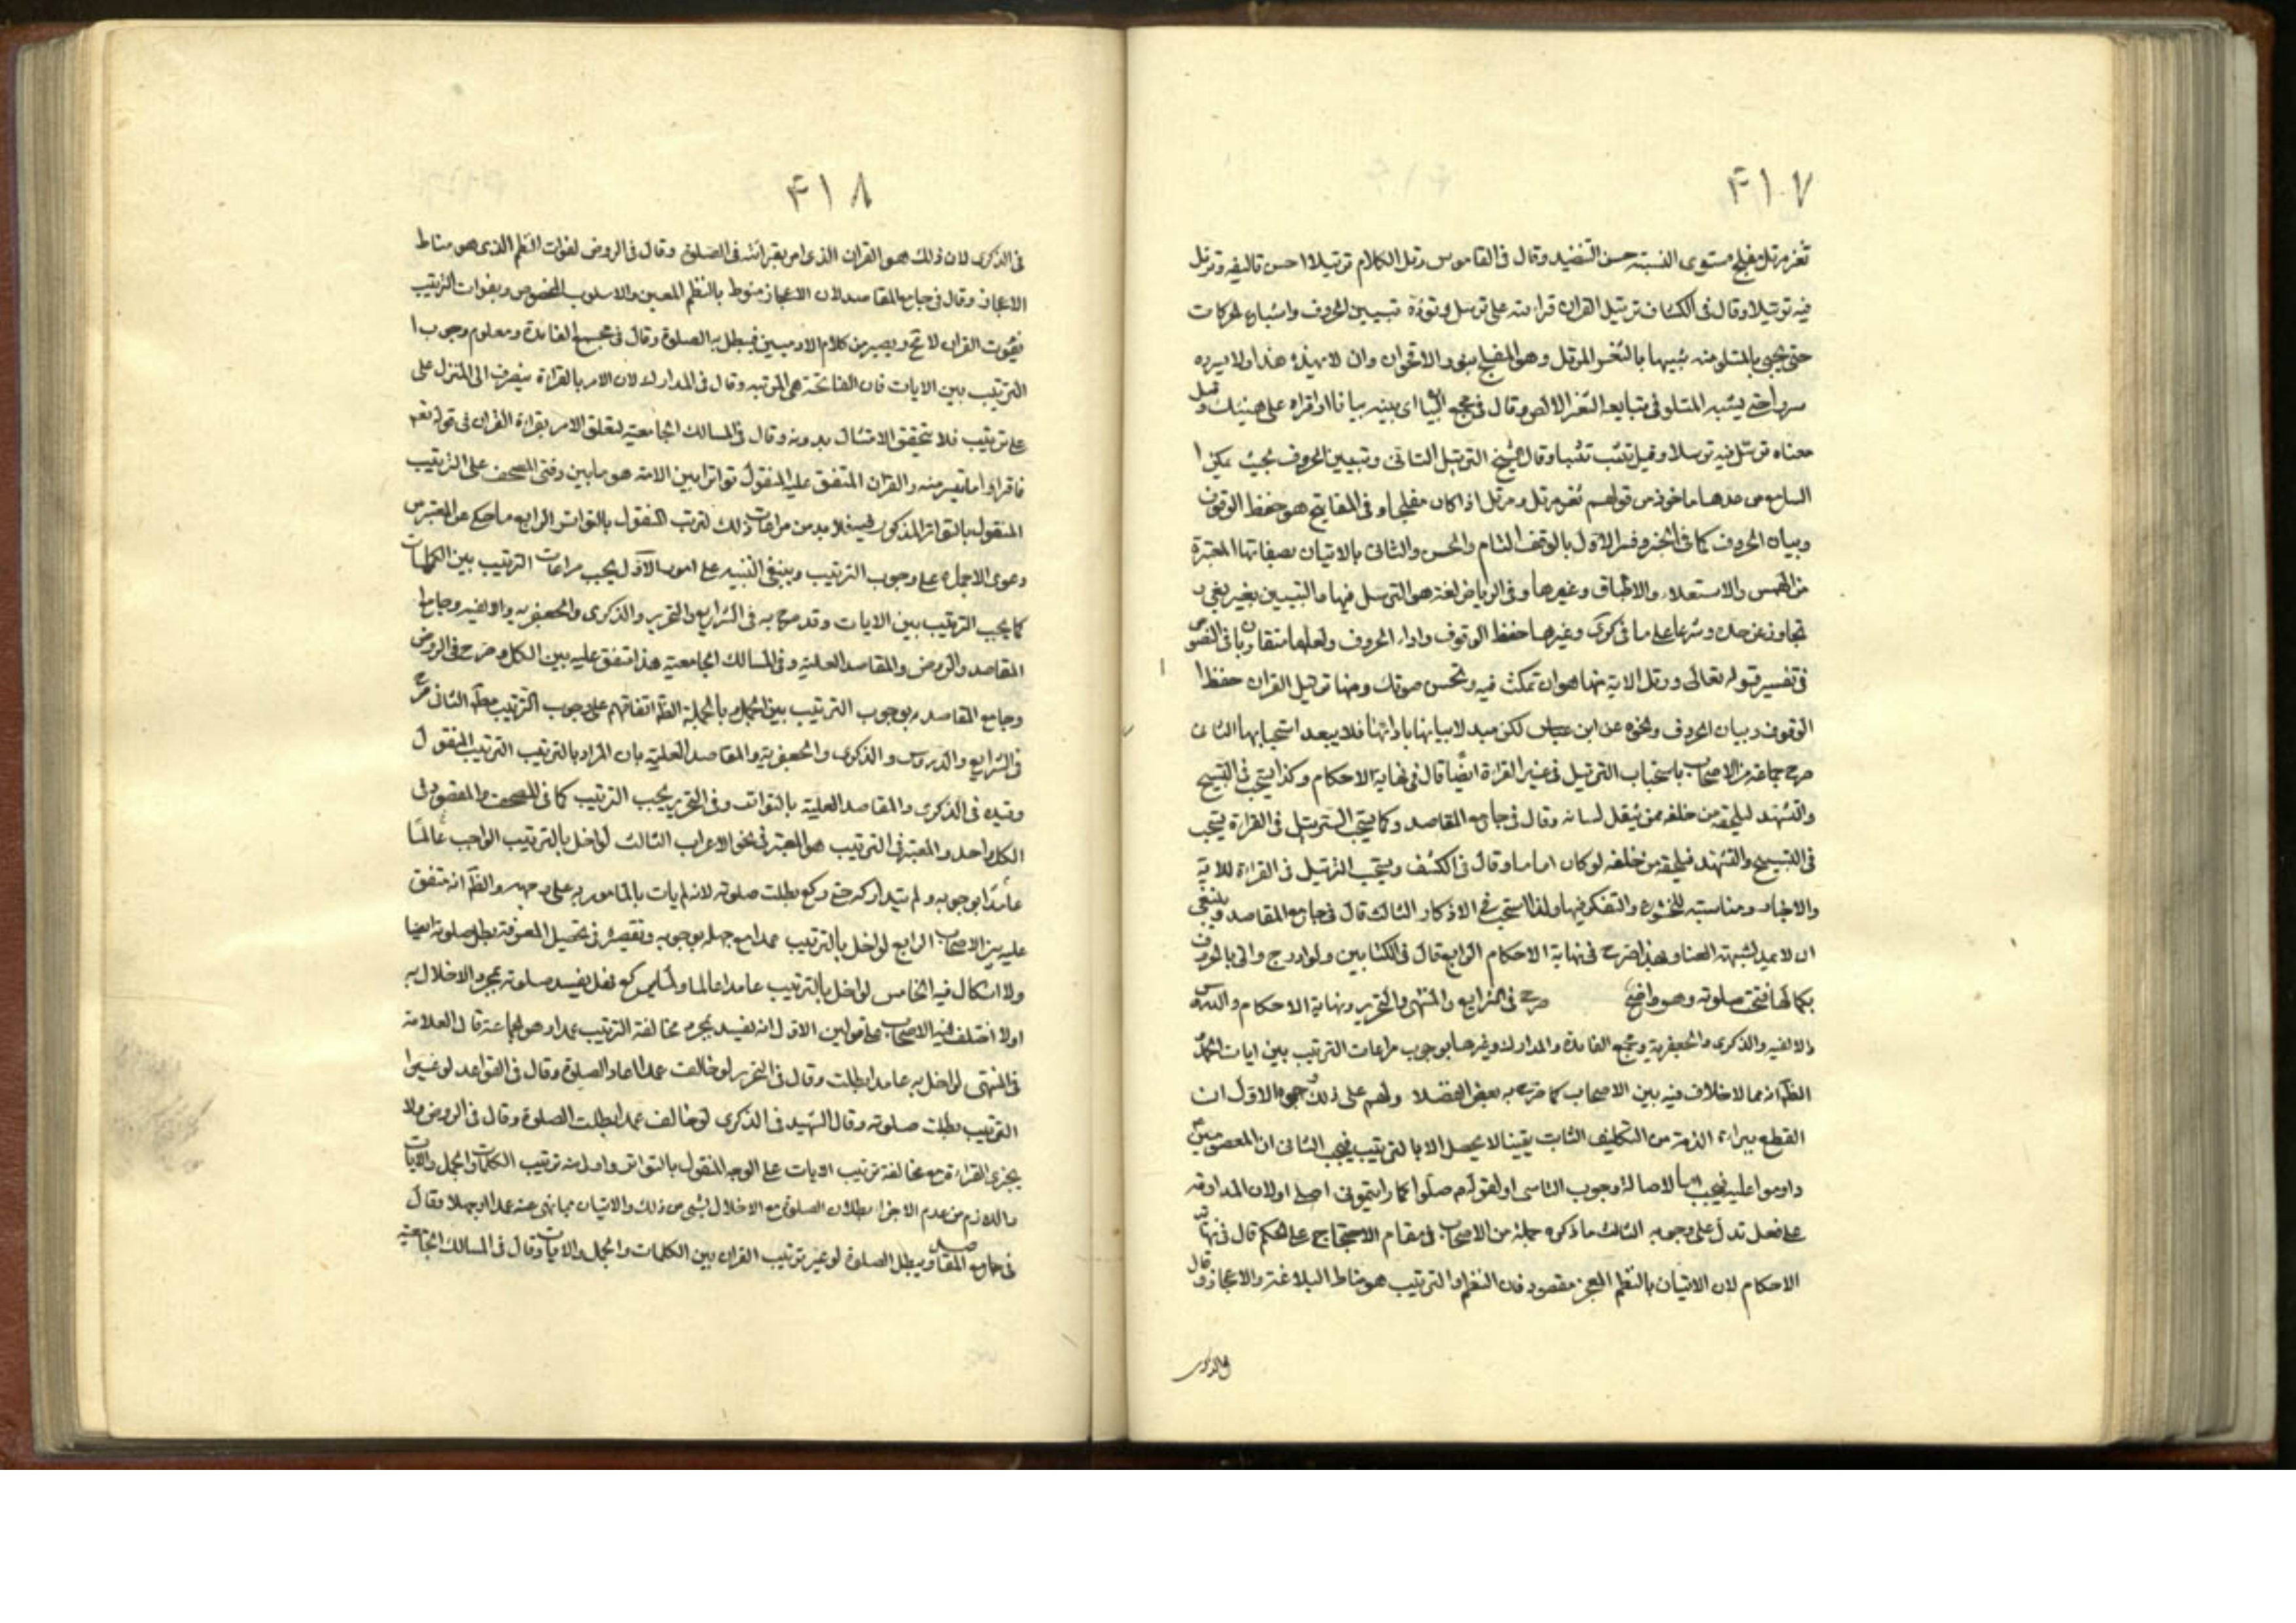 ۴۱۷
ثغر مرتل مفلج مستوى النسبة حسن التنضيد وقال فى القاموس رتل الكلام ترتيلا احسن تاليفه وترتل
فيه ترتيلا وقال فى الكشاف ترتيل القران قراءته على ترسل وتؤدة تبيين الحروف واشباع الحركات
حتى يجيئ بالمتلو منه شبيها بالثغر المرتل وهو المفلج بنور الاقحوان وان لا يهذه هذا ولا يسرده
سردا حتى يشبه المتلو فى تتابعه الثغر الالص وقال فى مجمع البيان اى بينه بيانا او اقراه على هينتك وقيل
معناه ترسل فيه ترسلا وقيل تثبت تثبتا وقال الشيخ الترتيل التانى وتبيين الحروف بحيث يمكن ا
السامع من عدها ماخوذ من قولهم ثغر مرتل ورتل اذا كان مفلجا وفى المفاتيح هو حفظ الوقوف
وبيان الحروف كما فى الخبر وفسر الاول بالوقف التام والحسن والثانى بالاتيان بصفاتها المعتبرة
من الهمس والاستعلاء والاطباق وغيرها وفى الرياض لغة هو الترسل فيها والتبيين بغير بغى و
تجاوز عن حده وشرعا على ما فى كرى وغيرها حفظ الوقوف واداء الحروف ولعلهما متقاربان وبا فى النصوص
فى تفسير قوله تعالى ورتل الاية منها هو ان تمكث فيه وتحسن صوتك ومنها ترتيل القران حفظ ا
الوقوف وبيان الحروف ونحوه عن ابن عباس لكن مبدلا بيانها بادائها فلا يبعد استحبابها الثانى
صرح جماعة من الاصحاب باستحباب الترتيل فى غير القراءة ايضا قال فى نهاية الاحكام وكذا يستحب فى التسبيح
والتشهد ليلحقه من خلفه ممن يثقل لسانه وقال فى جامع المقاصد وكما يستحب الترتيل فى القراءة يستحب
فى التسبيح والتشهد فيلحقه من خلفه لو كان اماما وقال فى الكشف ويستحب الترتيل فى القراءة للاية
والاخبار ومناسبته للخشوع والتفكر فيها ولذا استحب فى الاذكار الثالث قال فى جامع المقاصد وينبغى
ان لا يمد لشبهته الغناء وبهذا صرح فى نهاية الاحكام الرابع قال فى الكتابين ولو ادرج واتى بالحروف
بكمالها صحت صلوته وهو واضح صرح فى الشرايع والمنتهى والتحرير ونهاية الاحكام والدروس
والالفيه والذكرى والجعفرية ومجمع الفائدة والمدارك وغيرها بوجوب مراعات الترتيب بين ايات الحمد
الظ انه مما لا خلاف فيه بين الاصحاب كما صرح به بعض الفضلا ولهم على ذلك وجوه الاول ان
القطع ببراءة الذمة من التكليف الثابت يقينا لا يحصل الا بالترتيب فيجب الثانى ان المعصومين
داوموا عليه فيجب اما لاصالة وجوب التاسى او لقوله صلوا كما رايتمونى اصلى او لان المداومة
على فعل تدل على وجوبه الثالث ما ذكره جملة من الاصحاب فى مقام الاحتجاج على الحكم قال فى نهاية
الاحكام لان الاتيان بالنظم المعجز مقصود فان النظم والترتيب هو مناط البلاغة والاعجاز وقال
فى الذكرى
۴۱۸
فى الذكرى لان ذلك هو القران الذى امر بقرائته فى الصلوة وقال فى الروض لفوات النظم الذى هو مناط
الاعجاز وقال فى جامع المقاصد لان الاعجاز منوط بالنظم المعين والاسلوب المخصوص وبفوات الترتيب
يفوت القران لا مح ويصير من كلام الادميين فيبطل به الصلوة وقال فى مجمع الفائدة ومعلوم وجوب ا
الترتيب بين الايات فان الفاتحة هى المرتبه وقال فى المدارك لان الامر بالقراءة ينصرف الى المنزل على
على ترتيب فلا يتحقق الامتثال بدونه وقال فى المسالك الجامعيه لتعلق الامر بقراءة القران فى قوله تعم
فاقراوا ما تيسر منه والقران المتفق عليه المنقول تواترا بين الامة هو ما بين دفتى المصحف على الترتيب
المنقول بالتواتر المذكور فيه فلا بد من مراعات ذلك لترتب المنقول بالتواتر الرابع ما حكى عن المعتبر من
دعوى الاجماع على وجوب الترتيب وينبغى التنبيه على امور الاول يجب مراعات الترتيب بين الكلمات
كما يجب الترتيب بين الايات وقد صرح به فى الشرايع والتحرير والذكرى والجعفريه والالفيه وجامع ا
المقاصد والروض والمقاصد العلية وفى المسالك الجامعية هذا متفق عليه بين الكل وصرح فى الروض
وجامع المقاصد بوجوب الترتيب بين الجمل وبالجملة الظ اتفاقهم على وجوب الترتيب مط الثانى صرح
فى الشرايع والدروس والذكرى والجعفرية والمقاصد العلية بان المراد بالترتيب الترتيب المنقول
وقيده فى الذكرى والمقاصد العلية بالتواتر وفى التحرير يجب الترتيب كما فى المصحف والمقصود فى
الكل واحد والمعتبر فى الترتيب هو المعتبر فى نحو الاعراب الثالث لو اخل بالترتيب الواجب عالما
عامدا بوجوبه ولم يتداركه حتى ركع بطلت صلوته لانه لم يات بالمامور به على وجهه والظ انه متفق
عليه بين الاصحاب الرابع لو اخل بالترتيب عمدا مع جهله بوجوبه وتقصيره فى تحصيل المعرفة بطل صلوته ايضا
ولا اشكال فيه الخامس لو اخل بالترتيب عامدا عالما ولما يركع فهل يفسد صلوته بمجرد الاخلال به
اولا اختلف فيه الاصحاب على قولين الاول انه يفسد بمجرد مخالفة الترتيب عمدا وهو لجماعة قال العلامة
فى المنتهى لو اخل به عامدا بطلت وقال فى التحرير لو خالف عمدا اعاد الصلوة وقال فى القواعد لو غير ا
الترتيب بطلت صلوته وقال الشهيد فى الذكرى لو خالف عمدا بطلت الصلوة وقال فى الروض ولا
يجزى القراءة مع مخالفة ترتيب الايات على الوجه المنقول بالتواتر واولى منه ترتيب الكلمات والجمل والايات
واللازم من عدم الاجزاء بطلان الصلوة مع الاخلال بشئ من ذلك والاتيان مما نهى عنه عمدا او جهلا وقال
فى جامع المقاصد ويبطل الصلوة لو غير ترتيب القران بين الكلمات والجمل والايات وقال فى المسالك الجامعيه